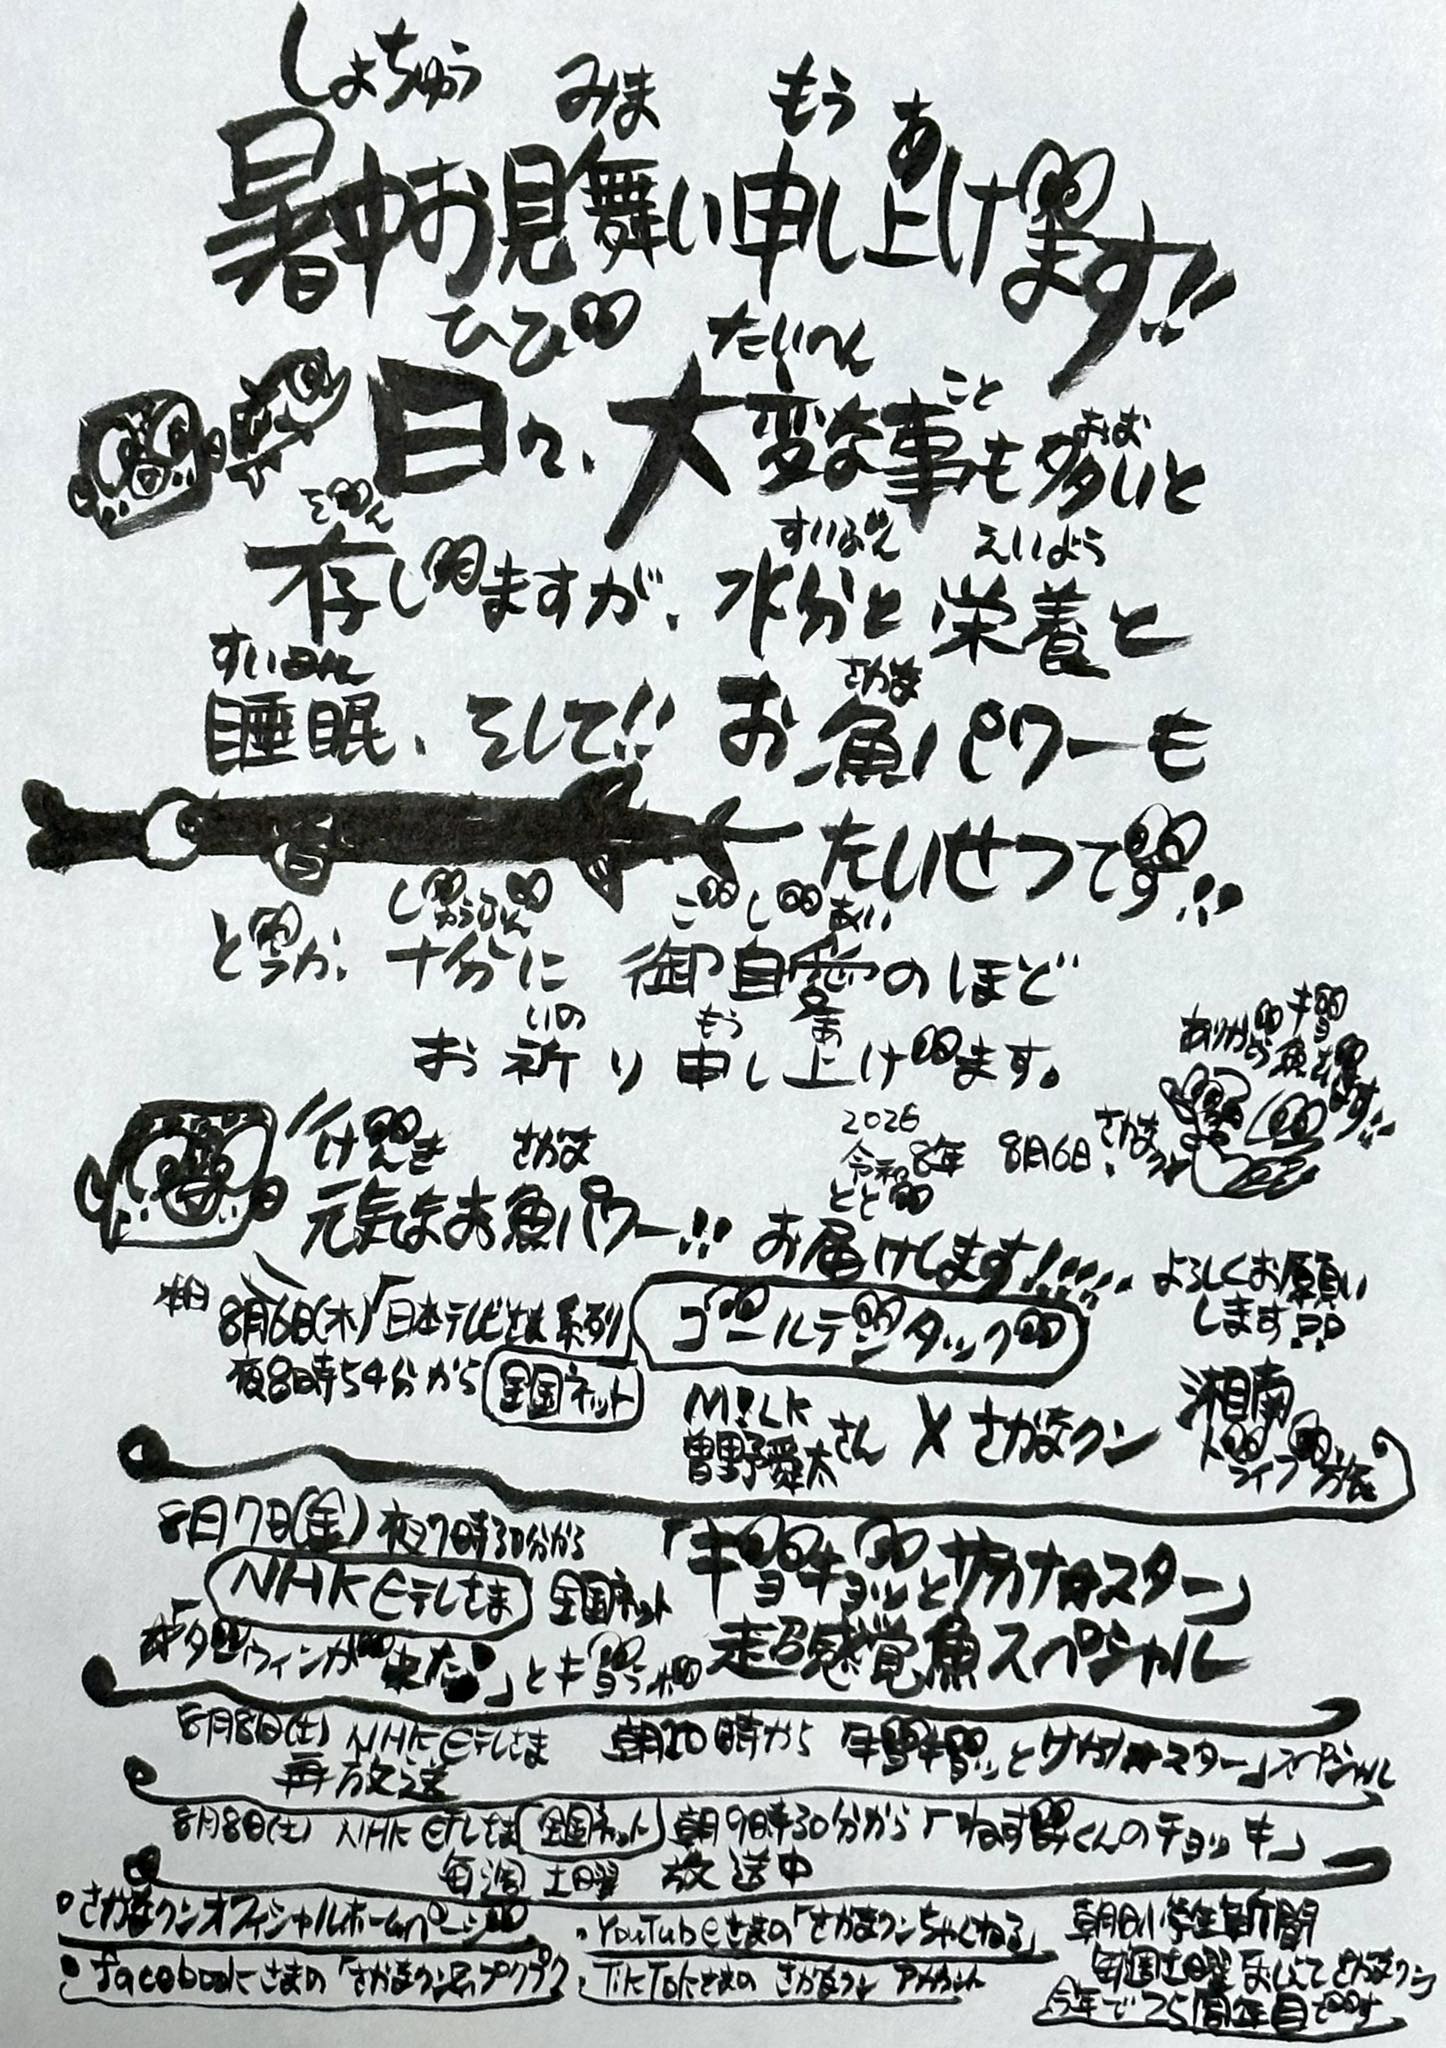 しょちゅう みま もう あ
暑中お見舞い申し上げます!!
ひび たいへん こと おお
日々、大変な事も多いと
ぞん すいぶん えいよう
存じますが、水分と栄養と
すいみん さかな
睡眠、そして!! お魚パワーも
たいせつです!!
じゅうぶん ごじあい
どうか、十分に 御自愛のほど
いの もう あ
お祈り申し上げます。
ありがとうギョざいます!!
2026
令和8年 8月6日、さかなクン
げんき さかな とど
元気なお魚パワー!! お届けします!!!!!
よろしくお願いします
本日 8月6日(木)「日本テレビさま系列
夜8時54分から 全国ネット
ゴールデンタッグ
M!LK
曽野舜太さん × さかなクン
湘南ドライブ旅
8月7日(金)夜7時30分から
NHK Eテレさま 全国ネット
「ギョギョッとサカナ★スター」
超感覚魚スペシャル
「ダーウィンが来た!」とギョラボ
8月8日(土)NHK Eテレさま 朝10時から 「ギョギョッとサカナ★スター」スペシャル
再放送
8月8日(土)NHK Eテレさま 全国ネット 朝9時30分から「ねずみくんのチョッキ」
毎週土曜 放送中
・さかなクンオフィシャルホームページ
・YouTubeさまの「さかなクンちゃんねる」
・facebookさまの「さかなクン
・TikTokさまの さかなクン アカウント
朝日小学生新聞
毎週土曜
さかなクン
今年で25周年目です